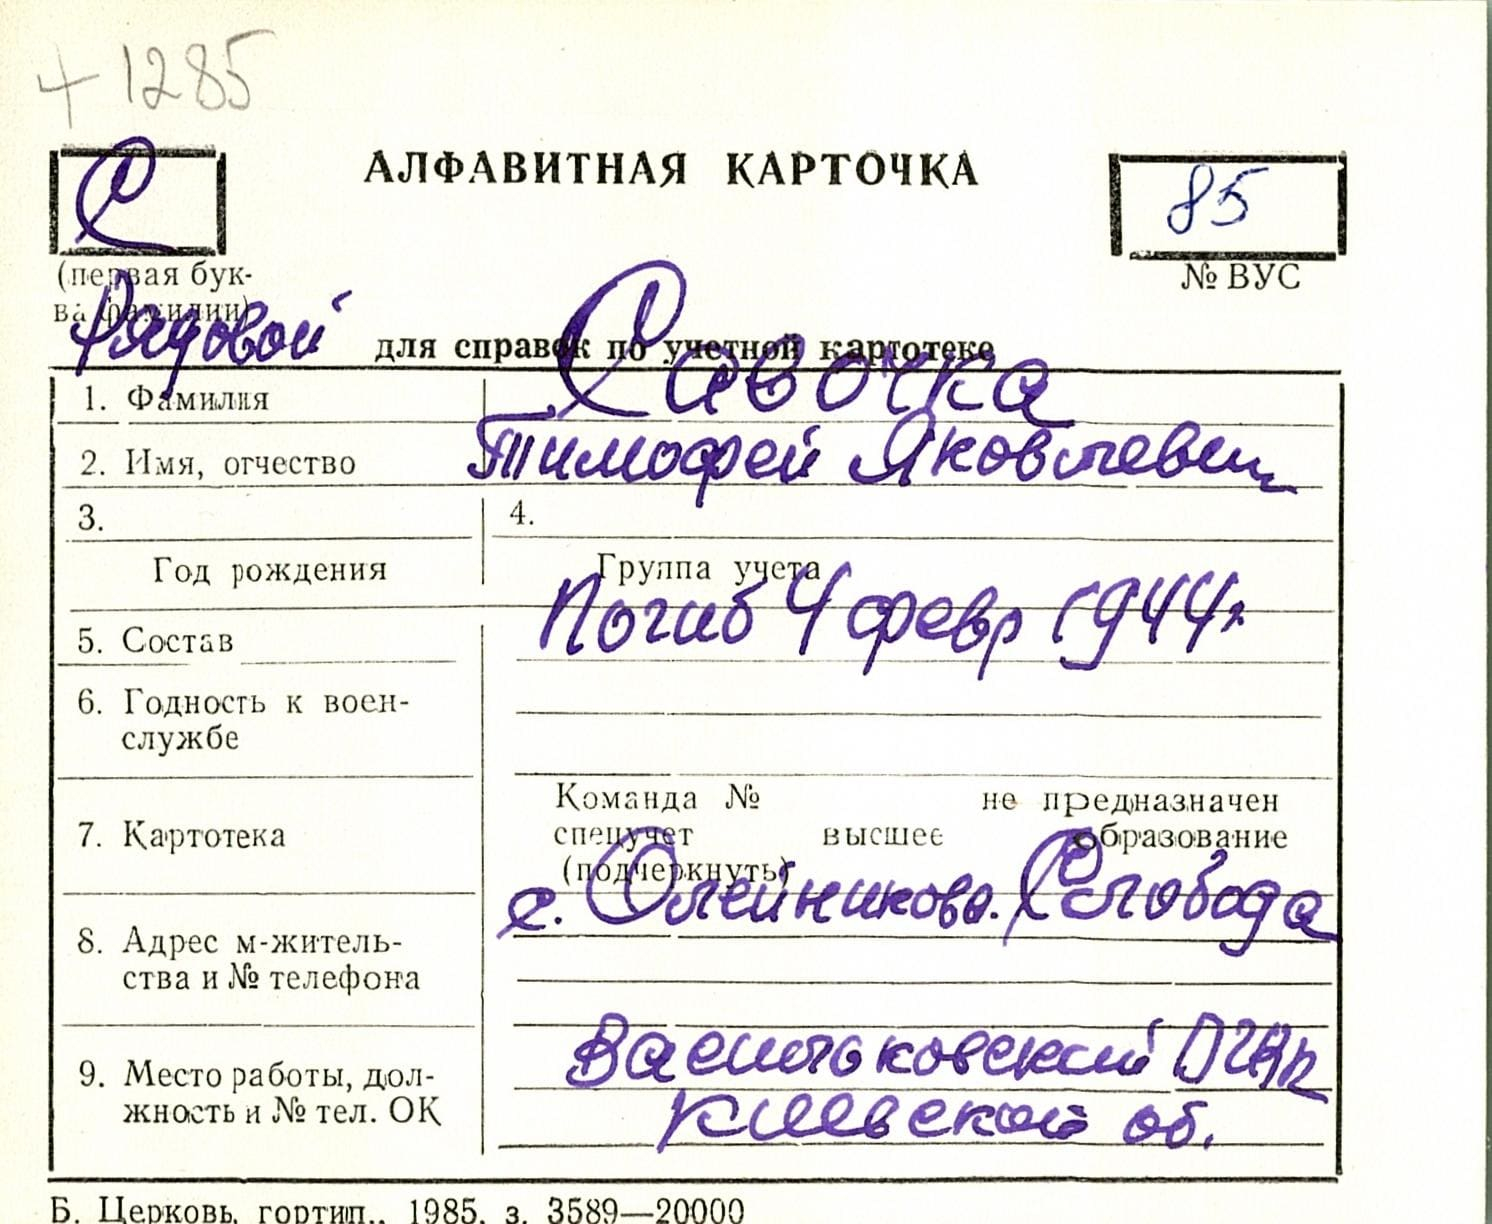 + 1285
С
АЛФАВИТНАЯ КАРТОЧКА
85
(первая бук-
ва фамилии)
№ ВУС
Рядовой
для справок по учетной картотеке
1. Фамилия Савочка
2. Имя, отчество Тимофей Яковлевич
3. 4.
Год рождения Группа учета
Погиб 4 февр 1944г
5. Состав
6. Годность к воен-
службе
Команда № не предназначен
7. Картотека спецучет высшее образование
(подчеркнуть)
с. Олейникова. Слобода
8. Адрес м-житель-
ства и № телефона
Васильковский ОГВК
9. Место работы, дол-
жность и № тел. ОК
Киевской об.
Б. Церковь, гортип., 1985, з. 3589—20000